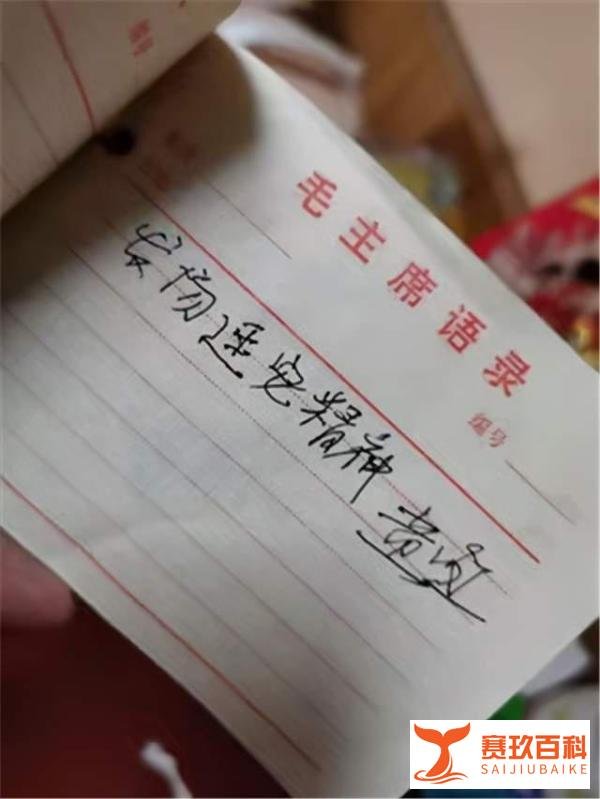 毛主席语录
编号
发扬延安精神
赛玖百科
SAIJIUBAIKE